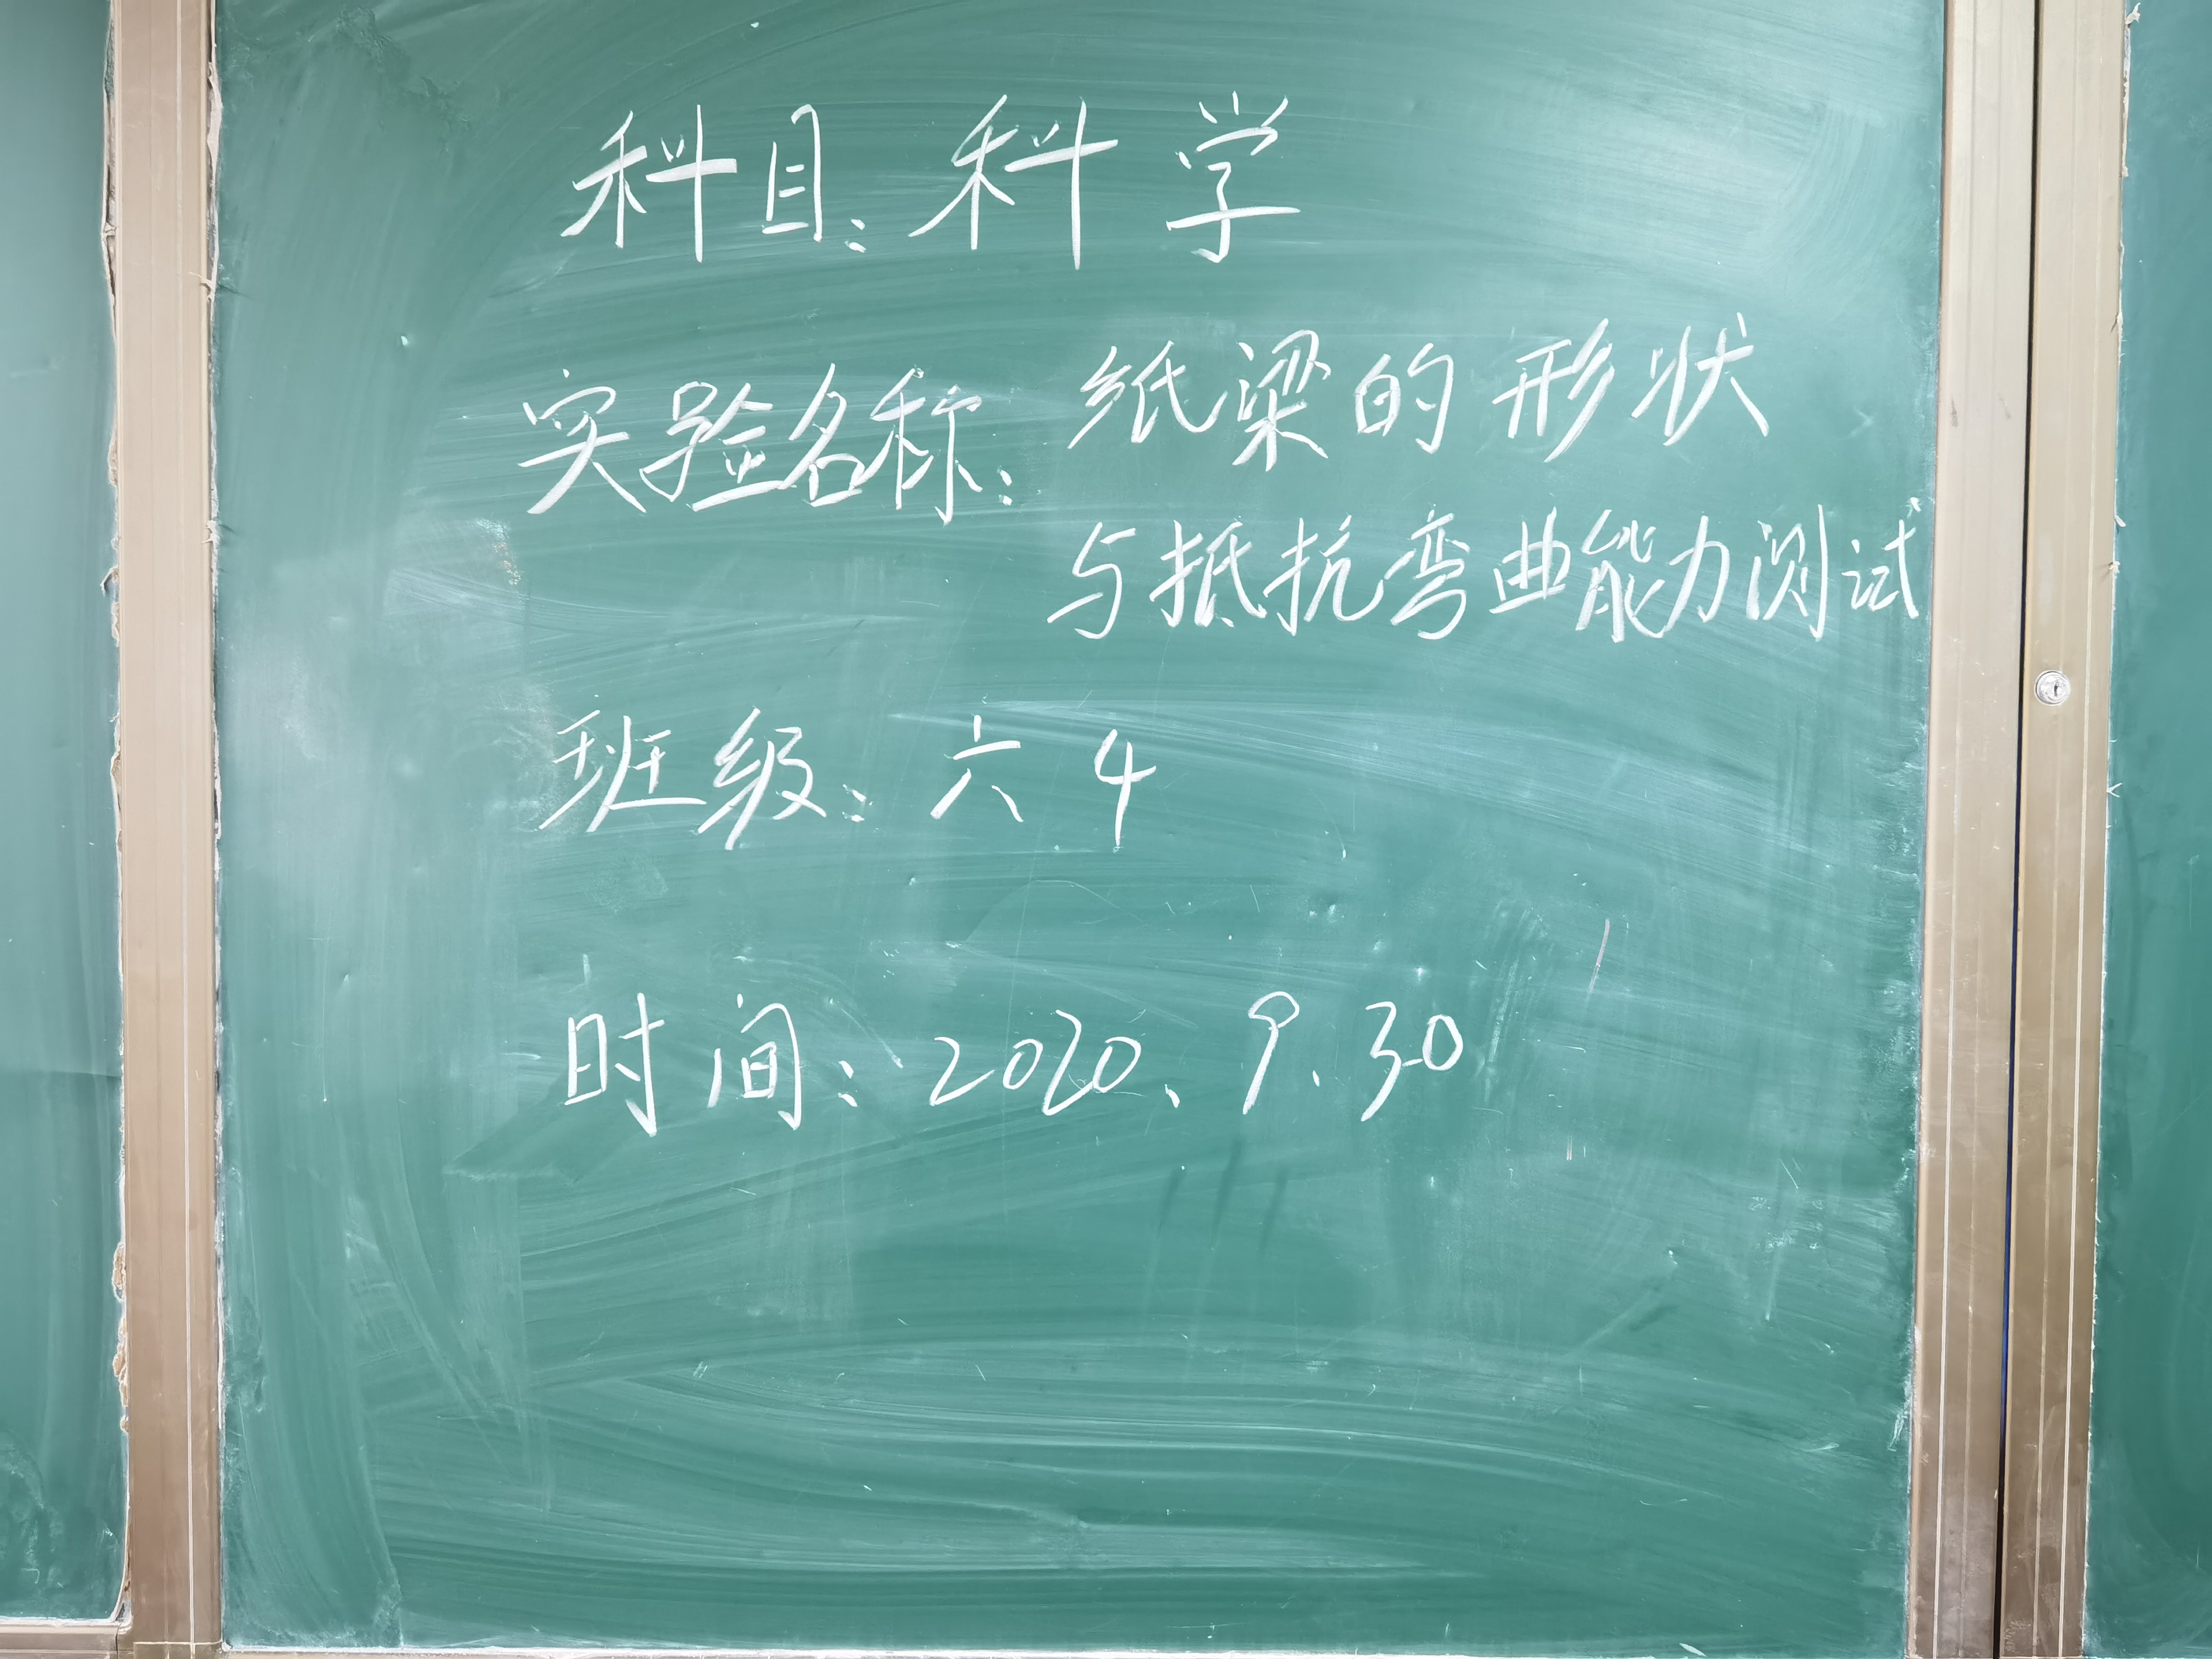 科目：科学
实验名称：纸梁的形状
与抵抗弯曲能力测试
班级：六4
时间：2020、9.30